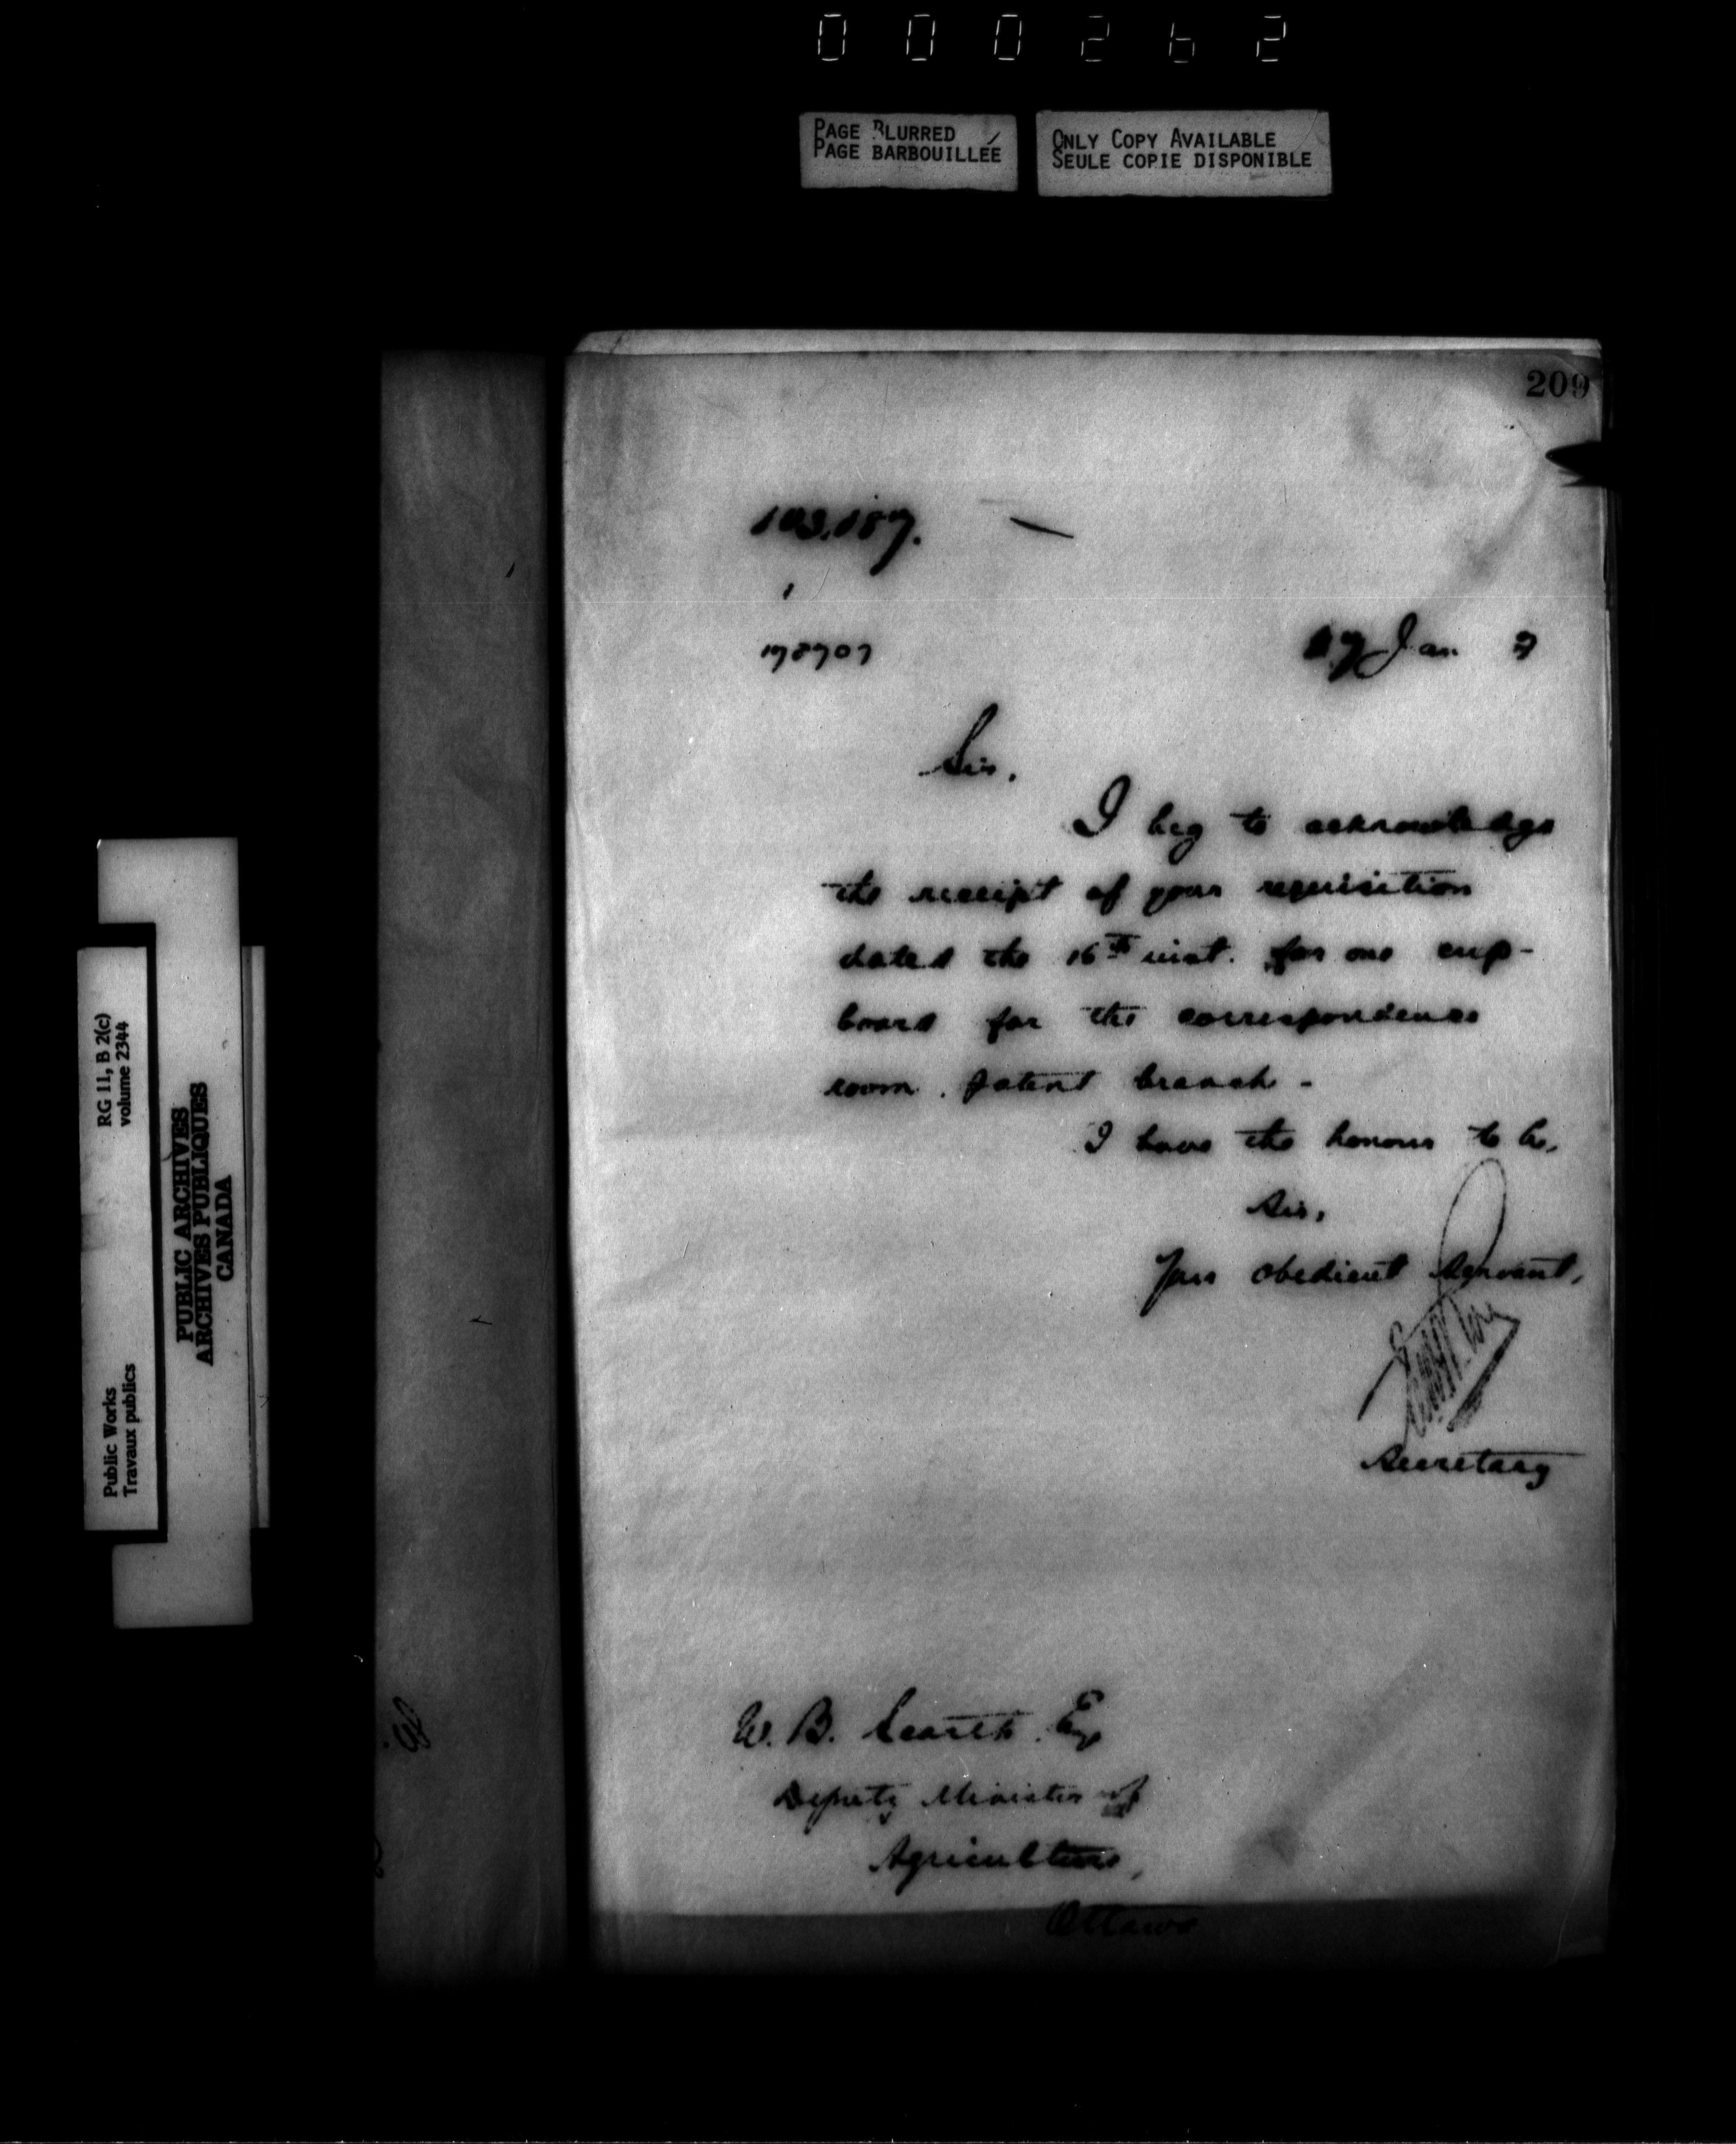 000262
PAGE BLURRED
PAGE BARBOUILLÉE
ONLY COPY AVAILABLE
SEULE COPIE DISPONIBLE
209
103,187.
178707
17 Jan 7
Sir,
I beg to acknowledge
the receipt of your requisition
dated the 16th inst. for one cup-
board for the correspondence
room, patent branch -
I have the honour to be,
Sir,
Your obedient Servant,
Secretary
W. B. Scarth, Esq
Deputy Minister of
Agriculture,
Ottawa
RG 11, B 2(c)
volume 2344
Public Works
Travaux publics
PUBLIC ARCHIVES
ARCHIVES PUBLIQUES
CANADA